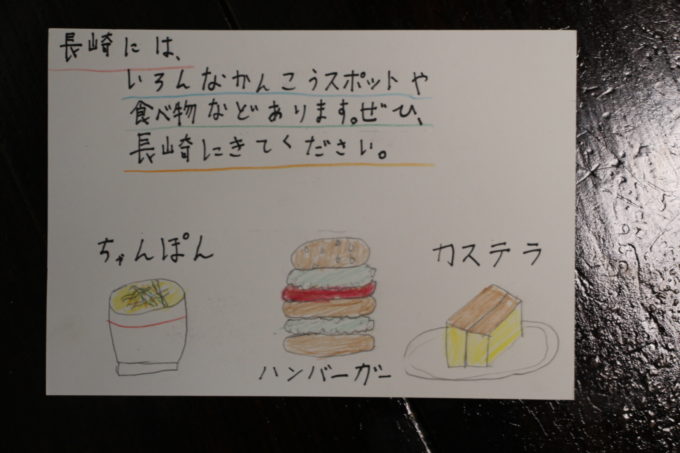 長崎には、
いろんなかんこうスポットや
食べ物などあります。ぜひ、
長崎にきてください。
ちゃんぽん
ハンバーガー
カステラ